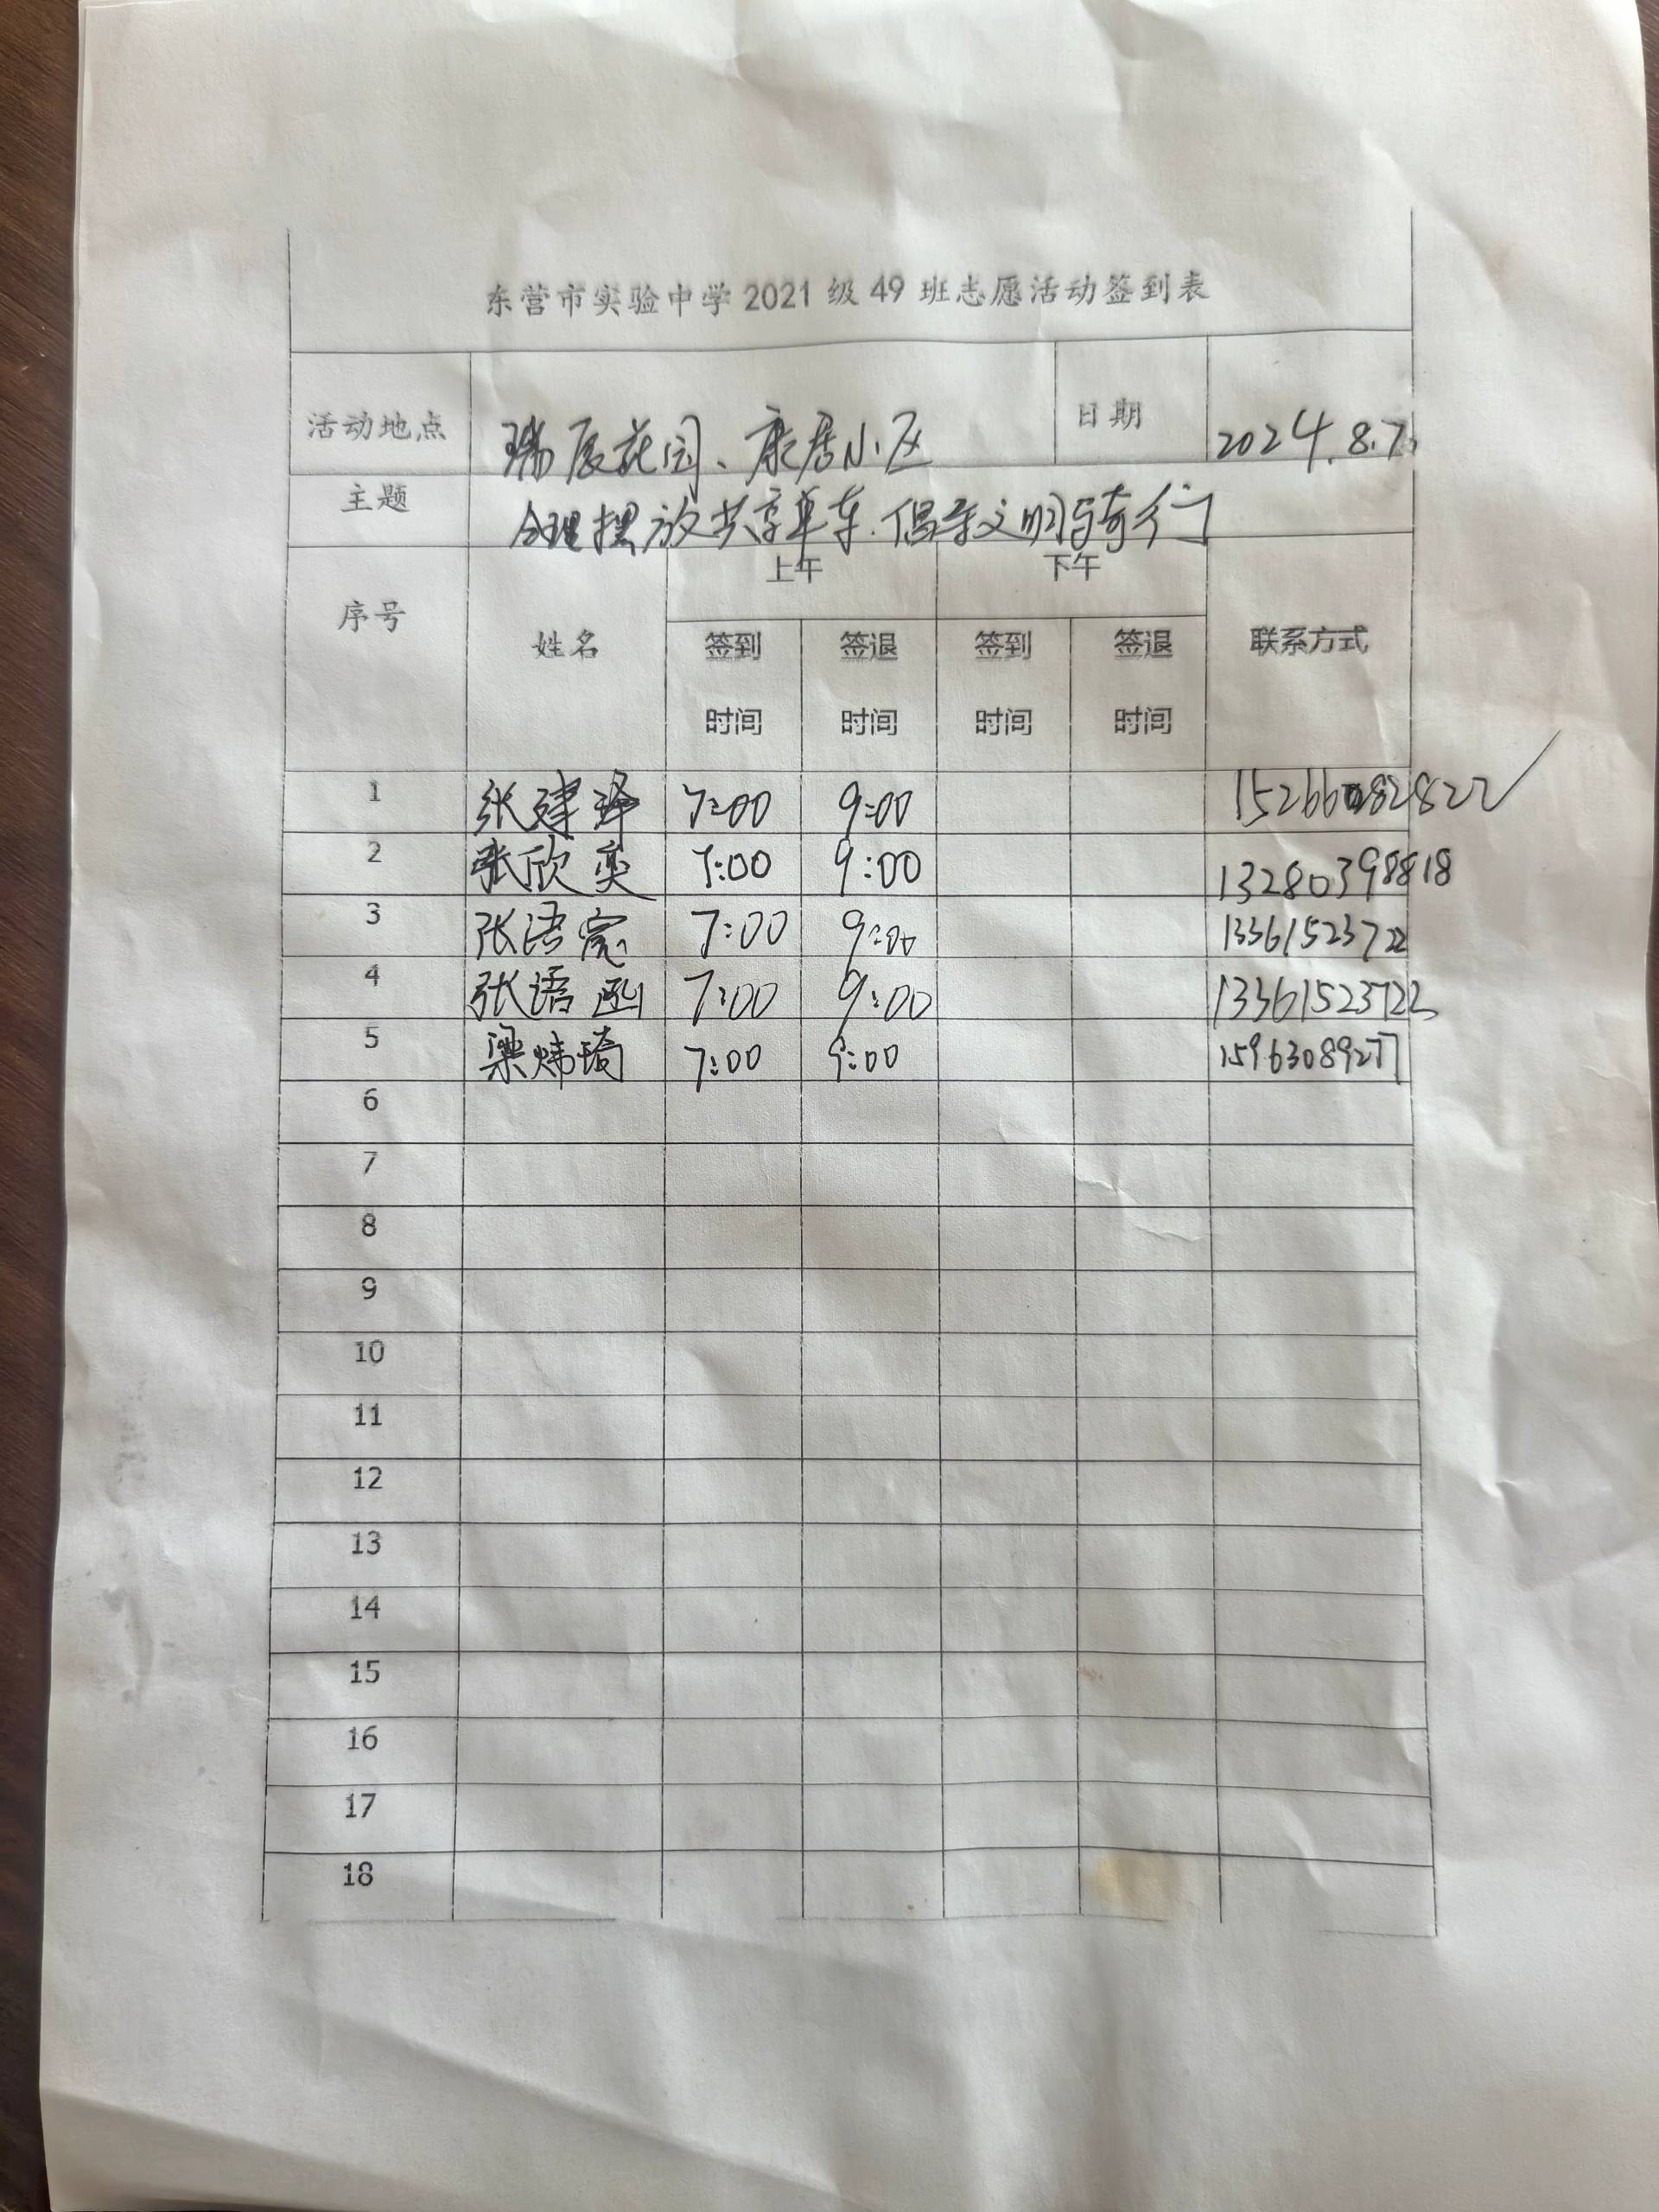 东营市实验中学2021级49班志愿活动签到表
活动地点 瑞辰花园、康居小区 日期 2024.8.7
主题 合理摆放共享单车.倡导文明骑行
序号 姓名 上午 下午 联系方式
签到时间 签退时间 签到时间 签退时间
1 张建泽 7:00 9:00 15266082822
2 张欣奕 7:00 9:00 13280398818
3 张语宸 7:00 9:00 13361523722
4 张语函 7:00 9:00 13361523722
5 梁炜琦 7:00 9:00 15963089277
6
7
8
9
10
11
12
13
14
15
16
17
18